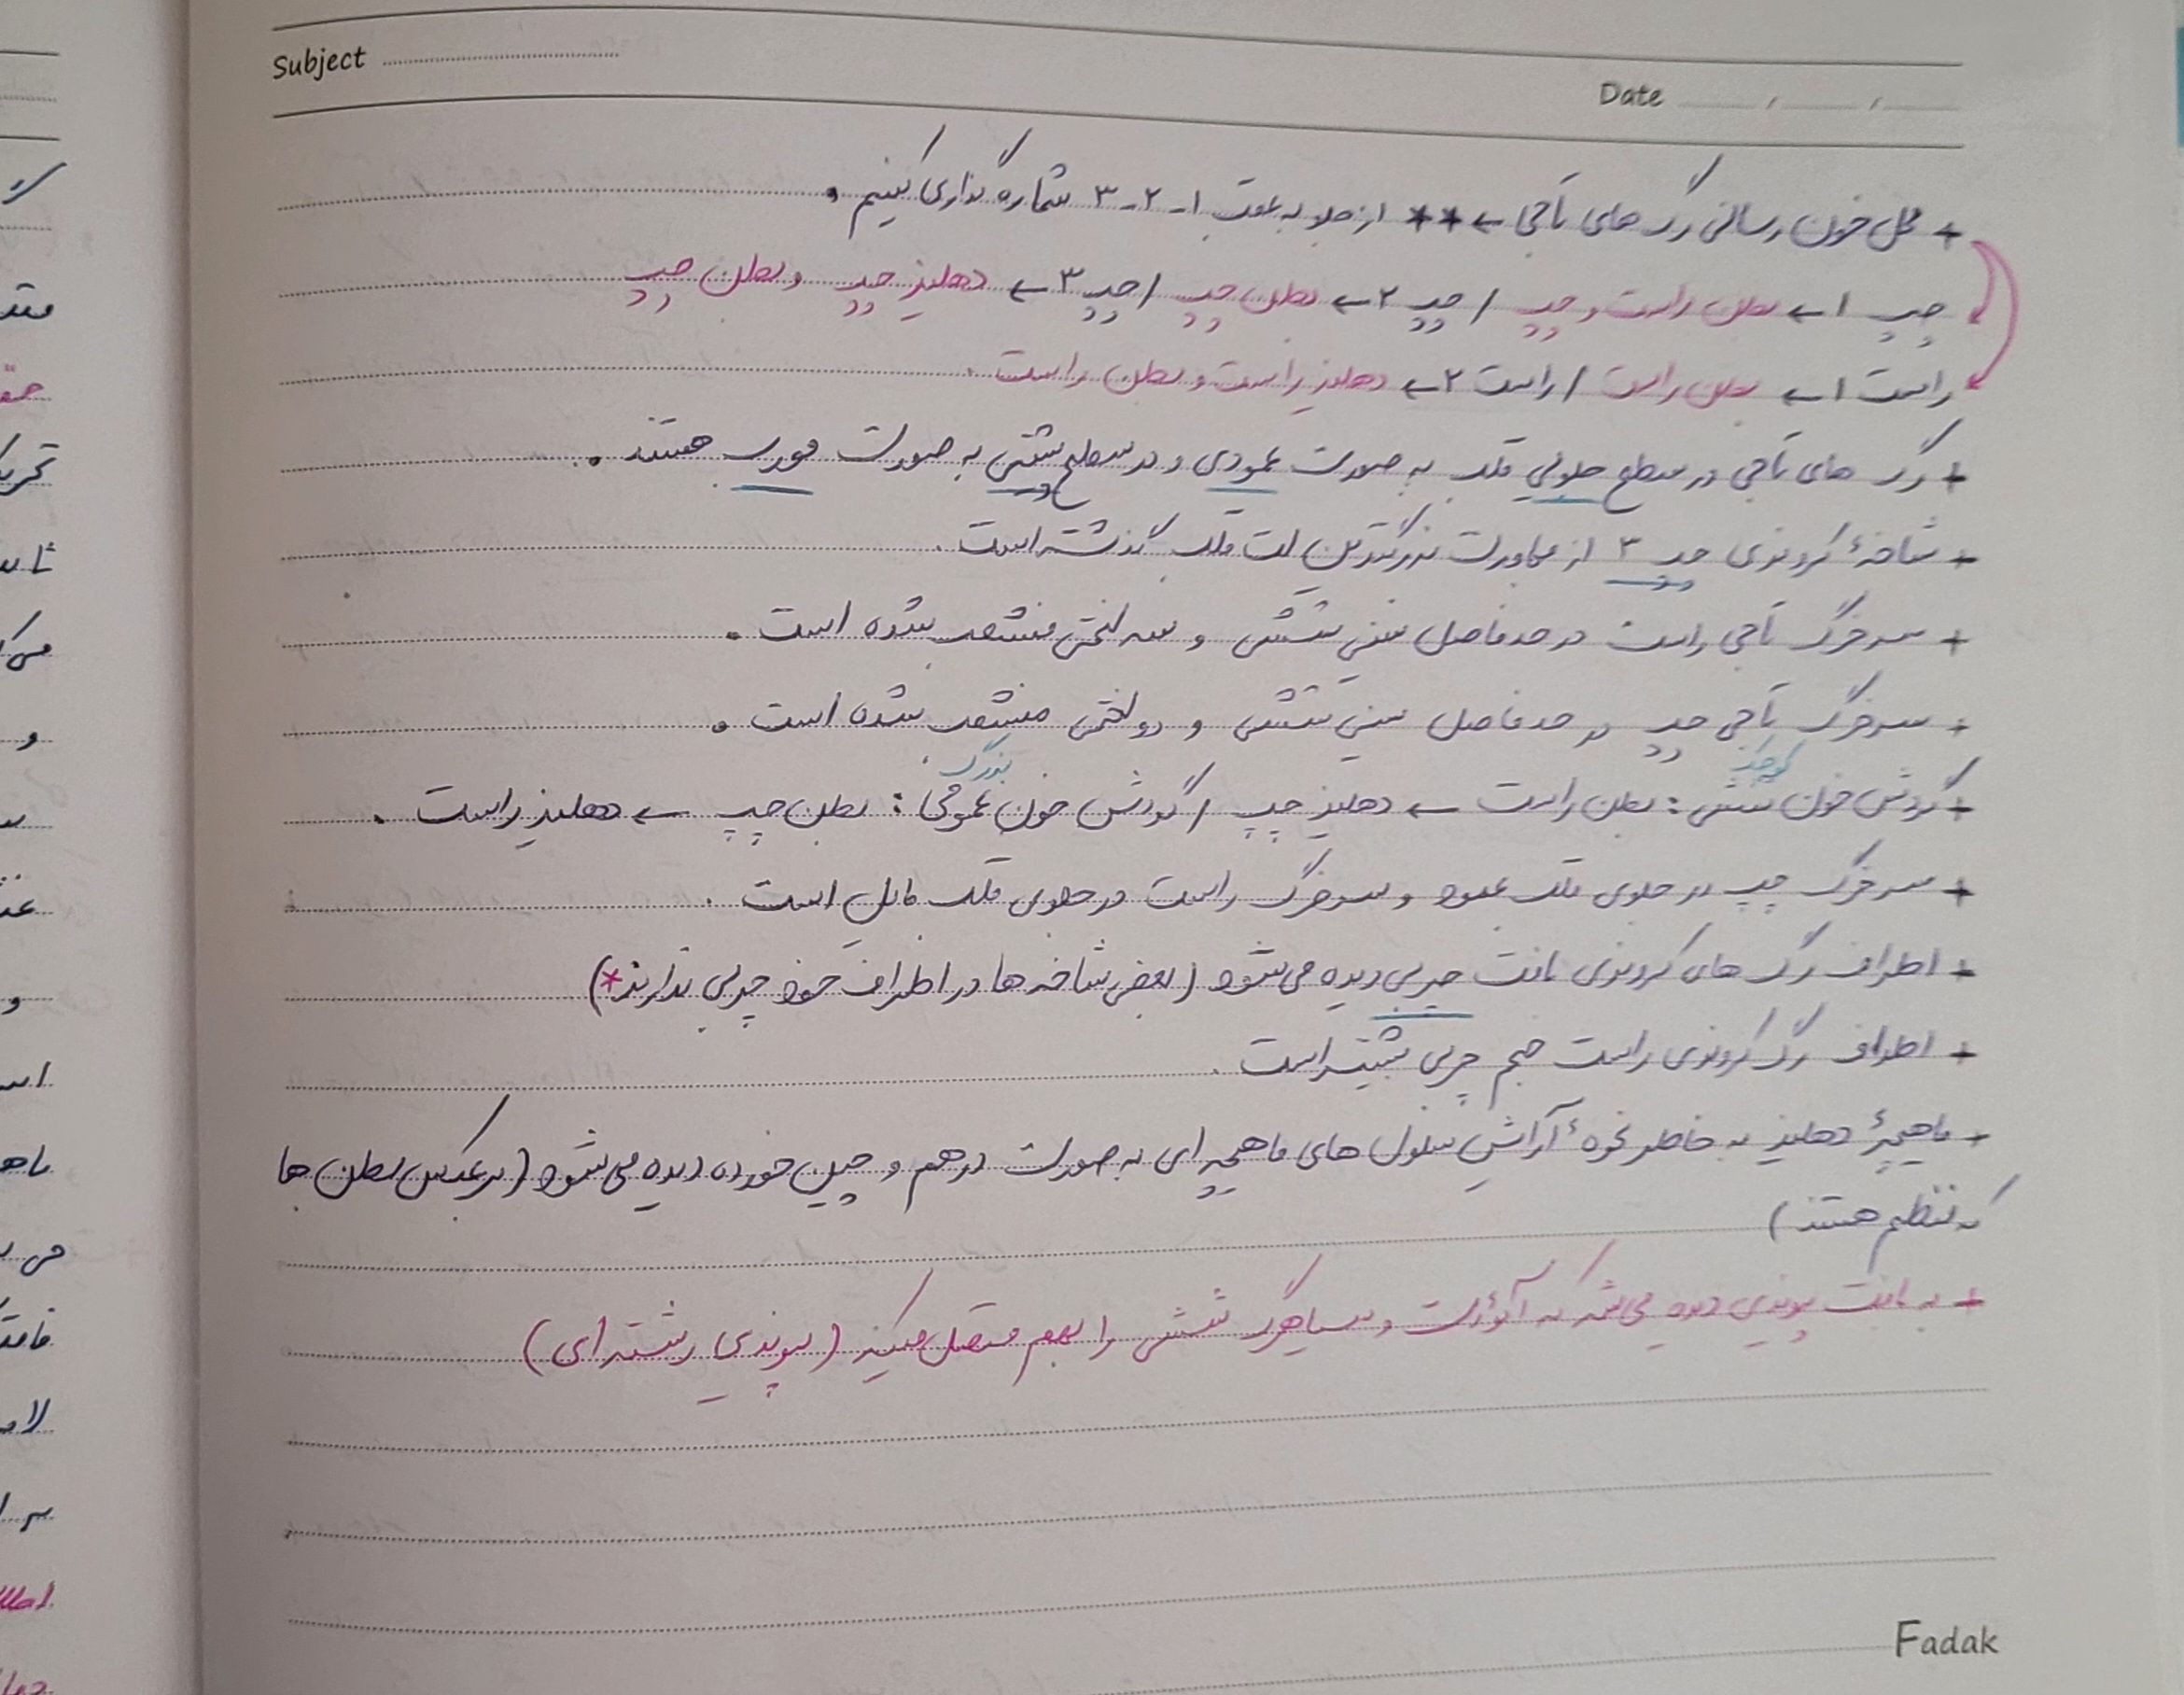 Subject
Date / /
+ محل خون رسانی رگ های تاجی ← ** از جلو به عقب ۱-۲-۳ شماره گذاری کنیم.
چپ ۱ ← بطن راست و چپ / چپ ۲ ← بطن چپ / چپ ۳ ← دهلیز چپ و بطن چپ
راست ۱ ← بطن راست / راست ۲ ← دهلیز راست و بطن راست.
+ رگ های تاجی در سطح جلویی قلب به صورت عمودی و در سطح پشتی به صورت مورب هستند.
+ شاخهٔ کرونری چپ ۳ از مجاورت بزرگترین لت قلب گذشته است.
+ سرخرگ تاجی راست در حد فاصل سینی ششی و سه لختی منشعب شده است.
+ سرخرگ تاجی چپ در حد فاصل سینی ششی و دولختی منشعب شده است.
کوچک بزرگ
+ گردش خون ششی: بطن راست ← دهلیز چپ / گردش خون عمومی: بطن چپ ← دهلیز راست.
+ سرخرگ چپ در جلوی قلب عمود و سرخرگ راست در جلوی قلب مایل است.
+ اطراف رگ های کرونری بافت چربی دیده می شود (بعضی شاخه ها در اطراف خود چربی ندارند*)
+ اطراف رگ کرونری راست حجم چربی بیشتر است.
+ ماهیچهٔ دهلیز به خاطر نحوهٔ آرایش سلول های ماهیچه ای به صورت درهم و چین خورده دیده می شود (برعکس بطن ها
که منظم هستند)
+ به بافت پیوندی دیده می شه که آئورت و سیاهرگ ششی را بهم متصل میکند (پیوندی رشته ای)
Fadak